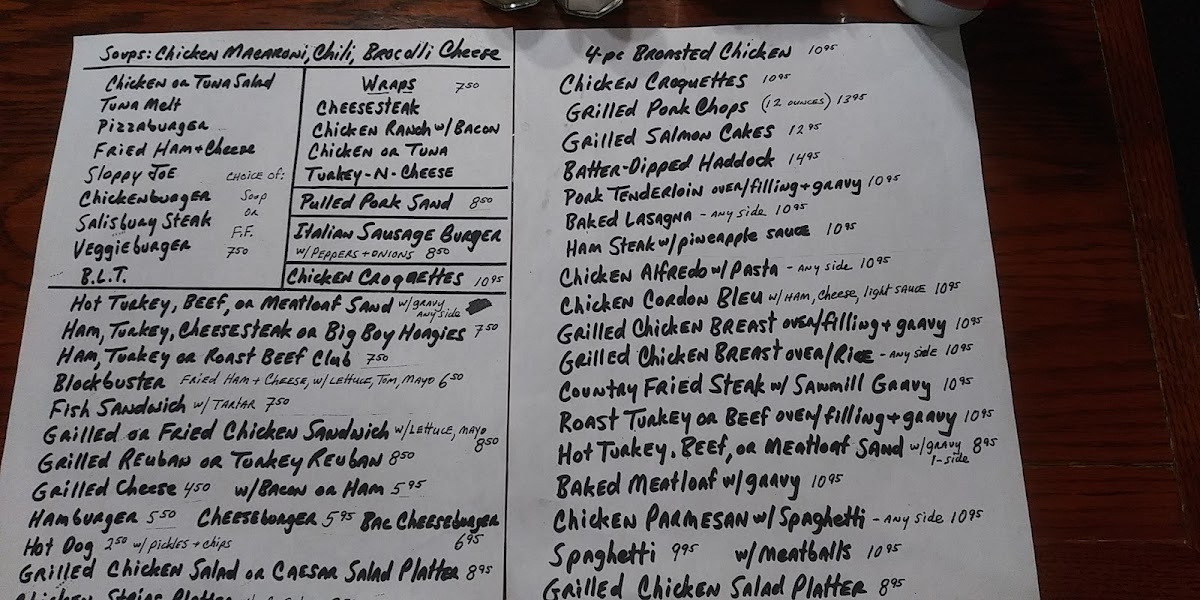 Soups: Chicken Macaroni, Chili, Brocolli Cheese
Chicken or Tuna Salad
Tuna Melt
Pizzaburger
Fried Ham + Cheese
Sloppy Joe
Chickenburger
Salisbury Steak
Veggieburger
B.L.T.
Choice of:
Soup
or
F.F.
7.50
Wraps 7.50
Cheesesteak
Chicken Ranch w/ Bacon
Chicken or Tuna
Turkey-N-Cheese
Pulled Pork Sand 8.50
Italian Sausage Burger
w/ Peppers + Onions 8.50
Chicken Croquettes 10.95
Hot Turkey, Beef, or Meatloaf Sand w/ gravy
any side
Ham, Turkey, Cheesesteak or Big Boy Hoagies 7.50
Ham, Turkey or Roast Beef Club 7.50
Blockbuster Fried Ham + Cheese, w/ Lettuce, Tom, Mayo 6.50
Fish Sandwich w/ Tartar 7.50
Grilled or Fried Chicken Sandwich w/ Lettuce, Mayo
8.50
Grilled Reuban or Turkey Reuban 8.50
Grilled Cheese 4.50 w/ Bacon or Ham 5.95
Hamburger 5.50 Cheeseburger 5.95 Bac Cheeseburger
6.95
Hot Dog 2.50 w/ pickles + chips
Grilled Chicken Salad or Caesar Salad Platter 8.95
Chicken Strips Platter
4-pc Broasted Chicken 10.95
Chicken Croquettes 10.95
Grilled Pork Chops (12 ounces) 13.95
Grilled Salmon Cakes 12.95
Batter-Dipped Haddock 14.95
Pork Tenderloin over/filling + gravy 10.95
Baked Lasagna - any side 10.95
Ham Steak w/ pineapple sauce 10.95
Chicken Alfredo w/ Pasta - any side 10.95
Chicken Cordon Bleu w/ Ham, Cheese, light sauce 10.95
Grilled Chicken Breast over/filling + gravy 10.95
Grilled Chicken Breast over/Rice - any side 10.95
Country Fried Steak w/ Sawmill Gravy 10.95
Roast Turkey or Beef over/filling + gravy 10.95
Hot Turkey, Beef, or Meatloaf Sand w/ gravy 8.95
1-side
Baked Meatloaf w/ gravy 10.95
Chicken Parmesan w/ Spaghetti - any side 10.95
Spaghetti 9.95 w/ meatballs 10.95
Grilled Chicken Salad Platter 8.95